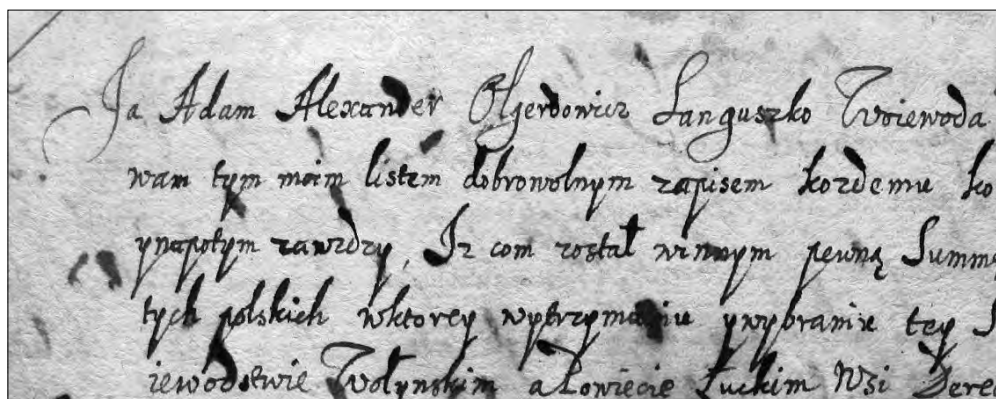 Ja Adam Alexander Olgerdowicz Sanguszko Woiewoda
wam tym moim listem dobrowolnym zapisem kozdemu ko
ynapotym zawzdzy, Iz com został winnym pewną Summe
tych polskich wktorey wytrzymaniu ywybraniu tey S
iewodstwie Wołynskim a Powiecie Łuckim Wsi Dere